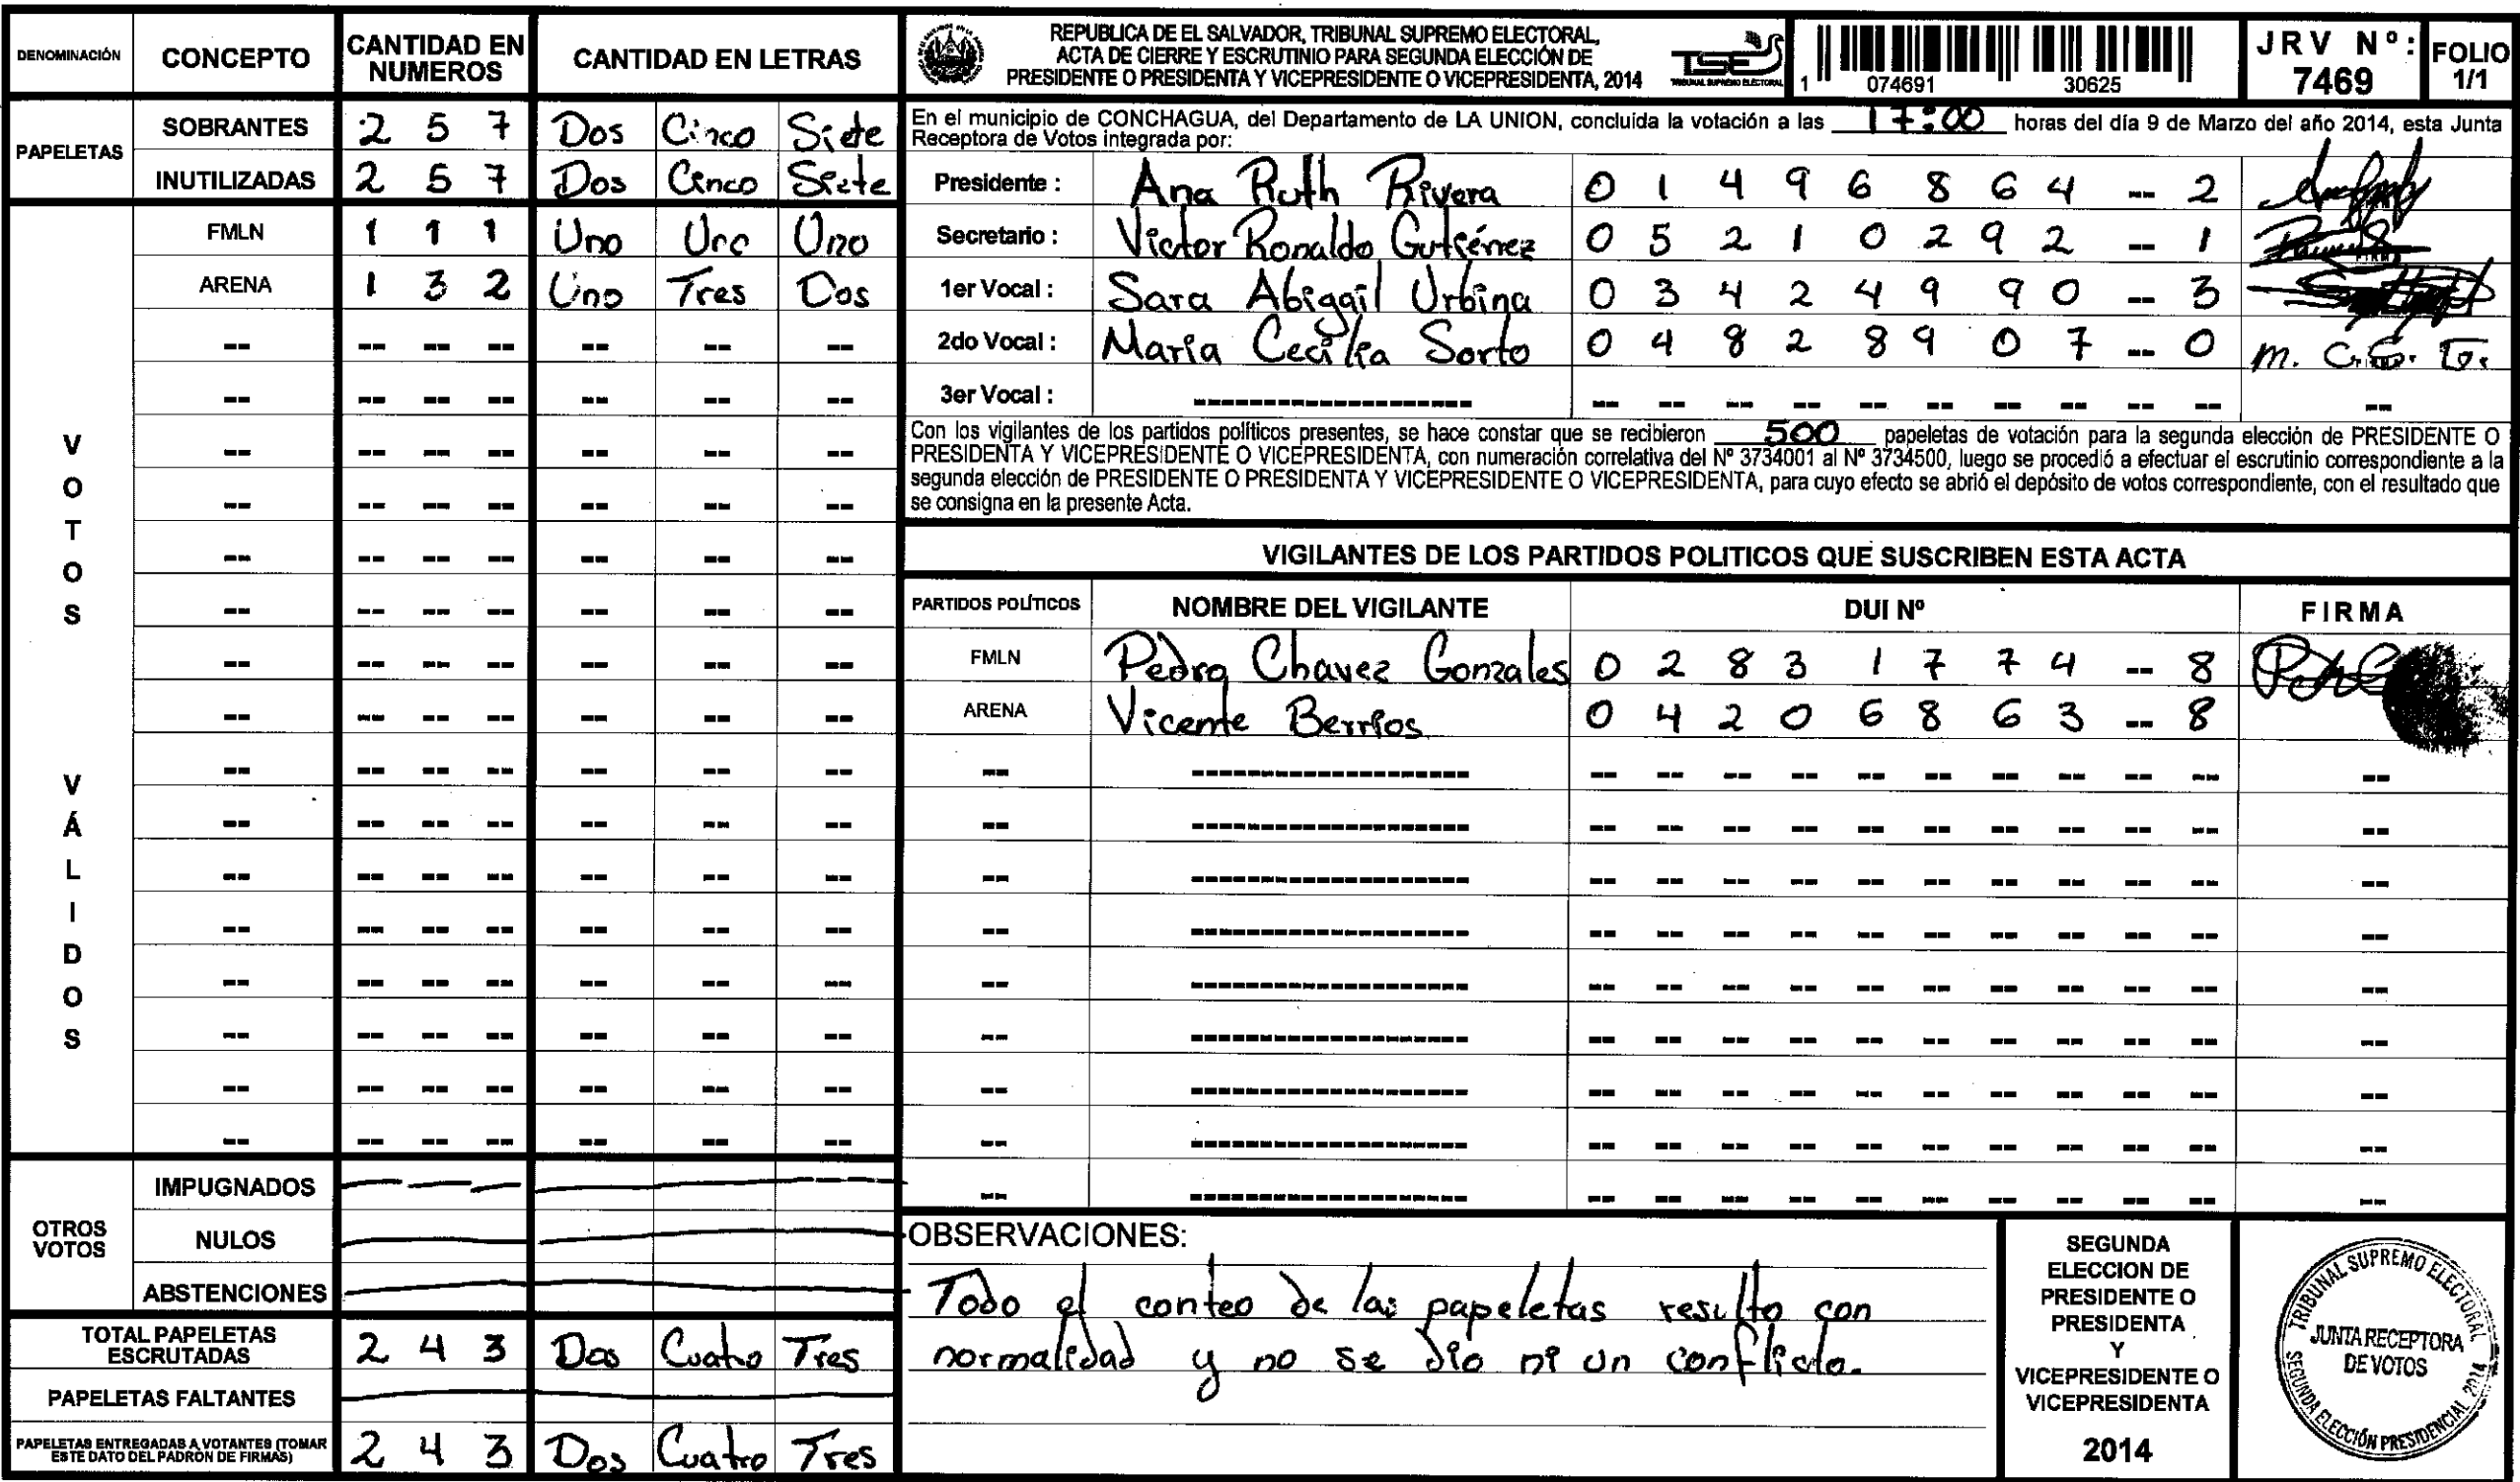 DENOMINACIÓN CONCEPTO CANTIDAD EN NUMEROS CANTIDAD EN LETRAS
PAPELETAS
SOBRANTES 2 5 7 Dos Cinco Siete
INUTILIZADAS 2 5 7 Dos Cinco Siete
VOTOS VÁLIDOS
FMLN 1 1 1 Uno Uno Uno
ARENA 1 3 2 Uno Tres Dos
OTROS VOTOS
IMPUGNADOS
NULOS
ABSTENCIONES
TOTAL PAPELETAS ESCRUTADAS 2 4 3 Dos Cuatro Tres
PAPELETAS FALTANTES
PAPELETAS ENTREGADAS A VOTANTES (TOMAR ESTE DATO DEL PADRÓN DE FIRMAS) 2 4 3 Dos Cuatro Tres
REPUBLICA DE EL SALVADOR, TRIBUNAL SUPREMO ELECTORAL,
ACTA DE CIERRE Y ESCRUTINIO PARA SEGUNDA ELECCIÓN DE
PRESIDENTE O PRESIDENTA Y VICEPRESIDENTE O VICEPRESIDENTA, 2014
TSE
TRIBUNAL SUPREMO ELECTORAL
1 074691 30625
JRV Nº: 7469
FOLIO 1/1
En el municipio de CONCHAGUA, del Departamento de LA UNION, concluida la votación a las 17:00 horas del día 9 de Marzo del año 2014, esta Junta
Receptora de Votos integrada por:
Presidente : Ana Ruth Rivera 0 1 4 9 6 8 6 4 -- 2
Secretario : Victor Ronaldo Gutiérrez 0 5 2 1 0 2 9 2 -- 1
1er Vocal : Sara Abigail Urbina 0 3 4 2 4 9 9 0 -- 3
2do Vocal : María Cecilia Sorto 0 4 8 2 8 9 0 7 -- 0
3er Vocal :
Con los vigilantes de los partidos políticos presentes, se hace constar que se recibieron 500 papeletas de votación para la segunda elección de PRESIDENTE O
PRESIDENTA Y VICEPRESIDENTE O VICEPRESIDENTA, con numeración correlativa del Nº 3734001 al Nº 3734500, luego se procedió a efectuar el escrutinio correspondiente a la
segunda elección de PRESIDENTE O PRESIDENTA Y VICEPRESIDENTE O VICEPRESIDENTA, para cuyo efecto se abrió el depósito de votos correspondiente, con el resultado que
se consigna en la presente Acta.
VIGILANTES DE LOS PARTIDOS POLITICOS QUE SUSCRIBEN ESTA ACTA
PARTIDOS POLÍTICOS NOMBRE DEL VIGILANTE DUI Nº FIRMA
FMLN Pedro Chavez Gonzales 0 2 8 3 1 7 7 4 -- 8
ARENA Vicente Berríos 0 4 2 0 6 8 6 3 -- 8
OBSERVACIONES:
Todo el conteo de las papeletas resulto con
normalidad y no se dio ni un conflicto.
SEGUNDA
ELECCION DE
PRESIDENTE O
PRESIDENTA
Y
VICEPRESIDENTE O
VICEPRESIDENTA
2014
TRIBUNAL SUPREMO ELECTORAL
JUNTA RECEPTORA
DE VOTOS
SEGUNDA ELECCIÓN PRESIDENCIAL 2014